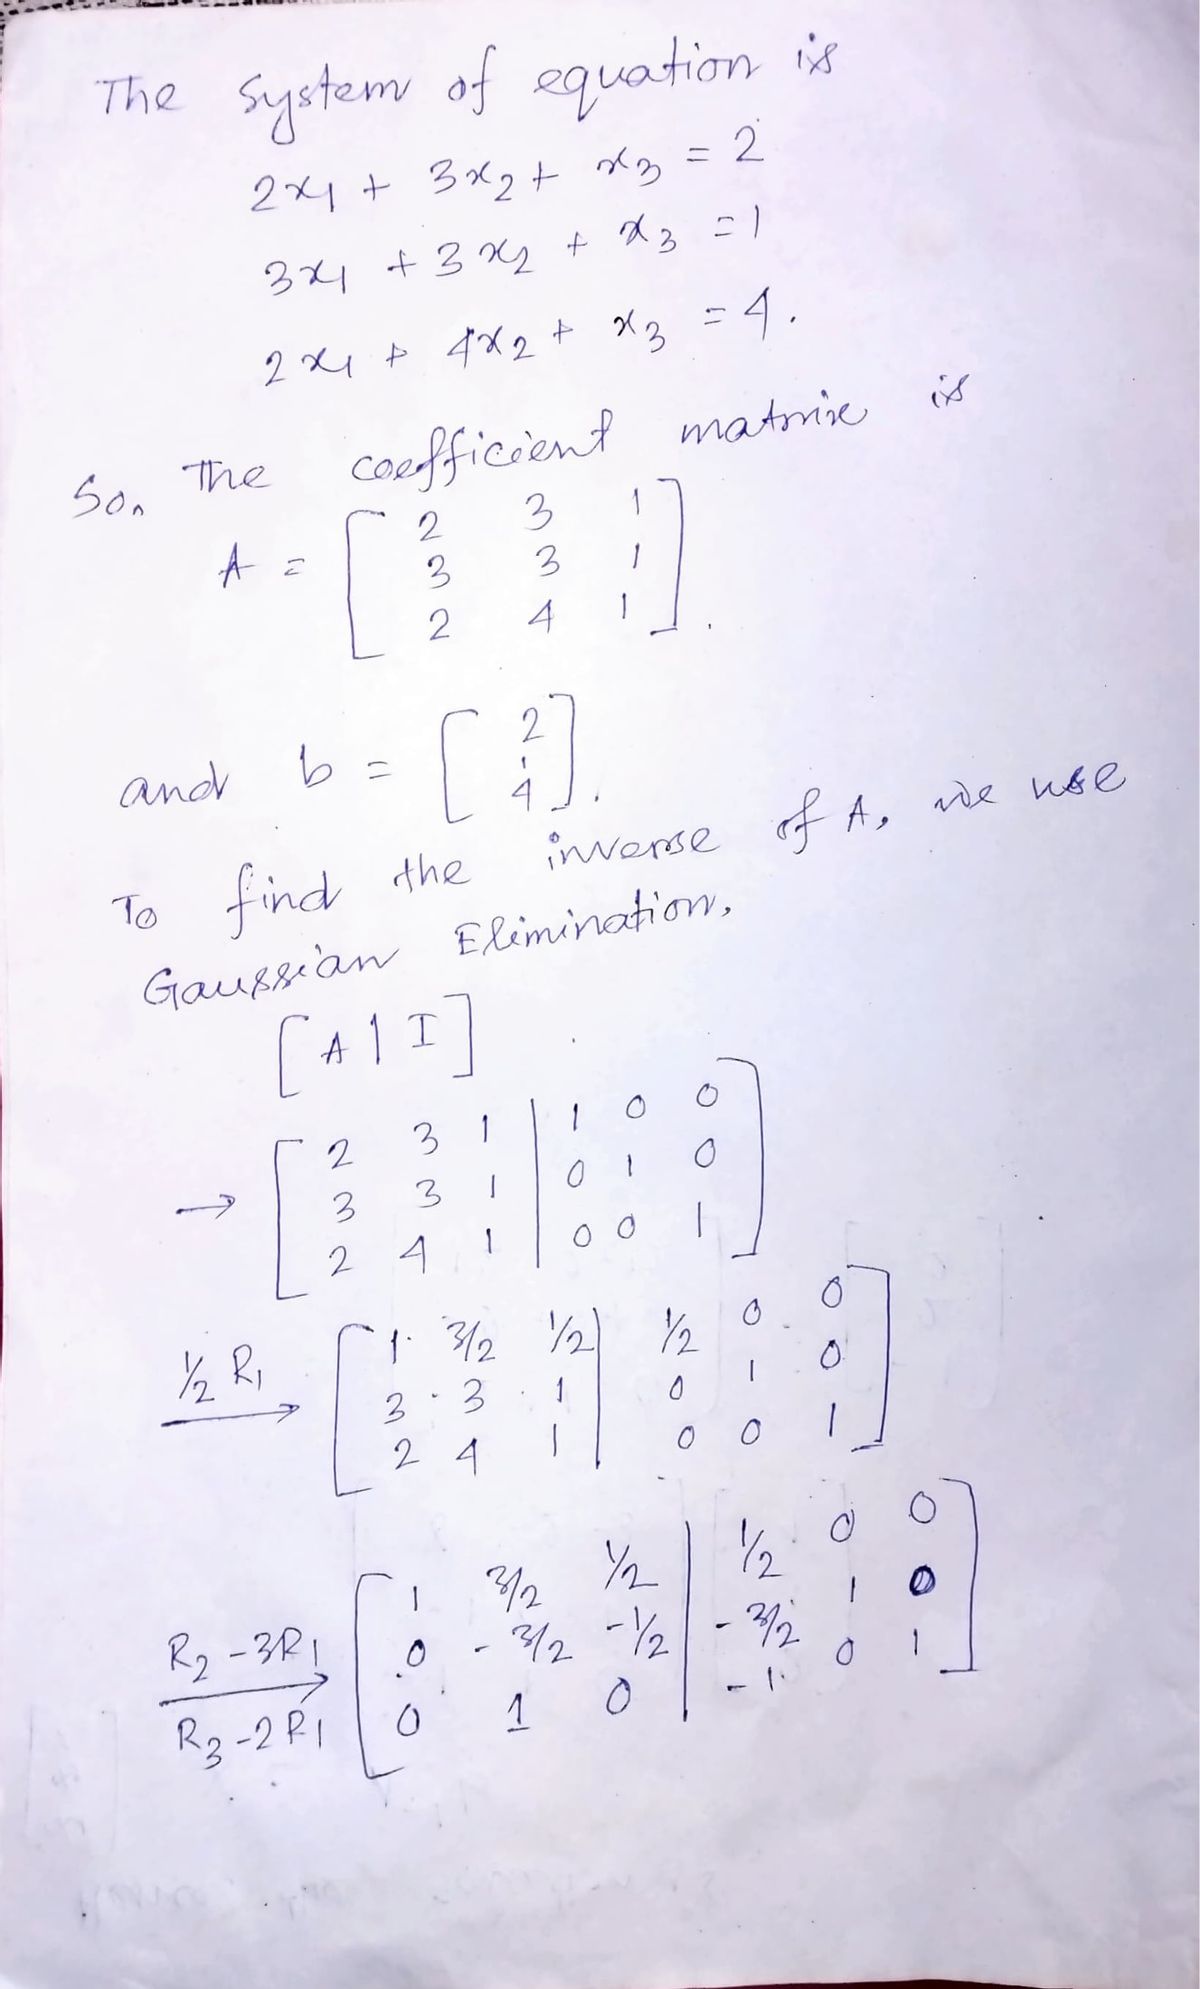 The system of equation is
2x₁ + 3x₂ + x₃ = 2
3x₁ + 3x₂ + x₃ = 1
2x₁ + 4x₂ + x₃ = 4.
So, the coefficient matrix is
A = [ 2 3 1
3 3 1
2 4 1 ].
and b = [ 2
1
4 ].
To find the inverse of A, we use
Gaussian Elimination,
[ A | I ]
→ [ 2 3 1 | 1 0 0
3 3 1 | 0 1 0
2 4 1 | 0 0 1 ]
½ R₁ → [ 1 3/2 1/2 | 1/2 0 0
3 3 1 | 0 1 0
2 4 1 | 0 0 1 ]
R₂ - 3R₁
R₃ - 2R₁ → [ 1 3/2 1/2 | 1/2 0 0
0 -3/2 -1/2 | -3/2 1 0
0 1 0 | -1 0 1 ]